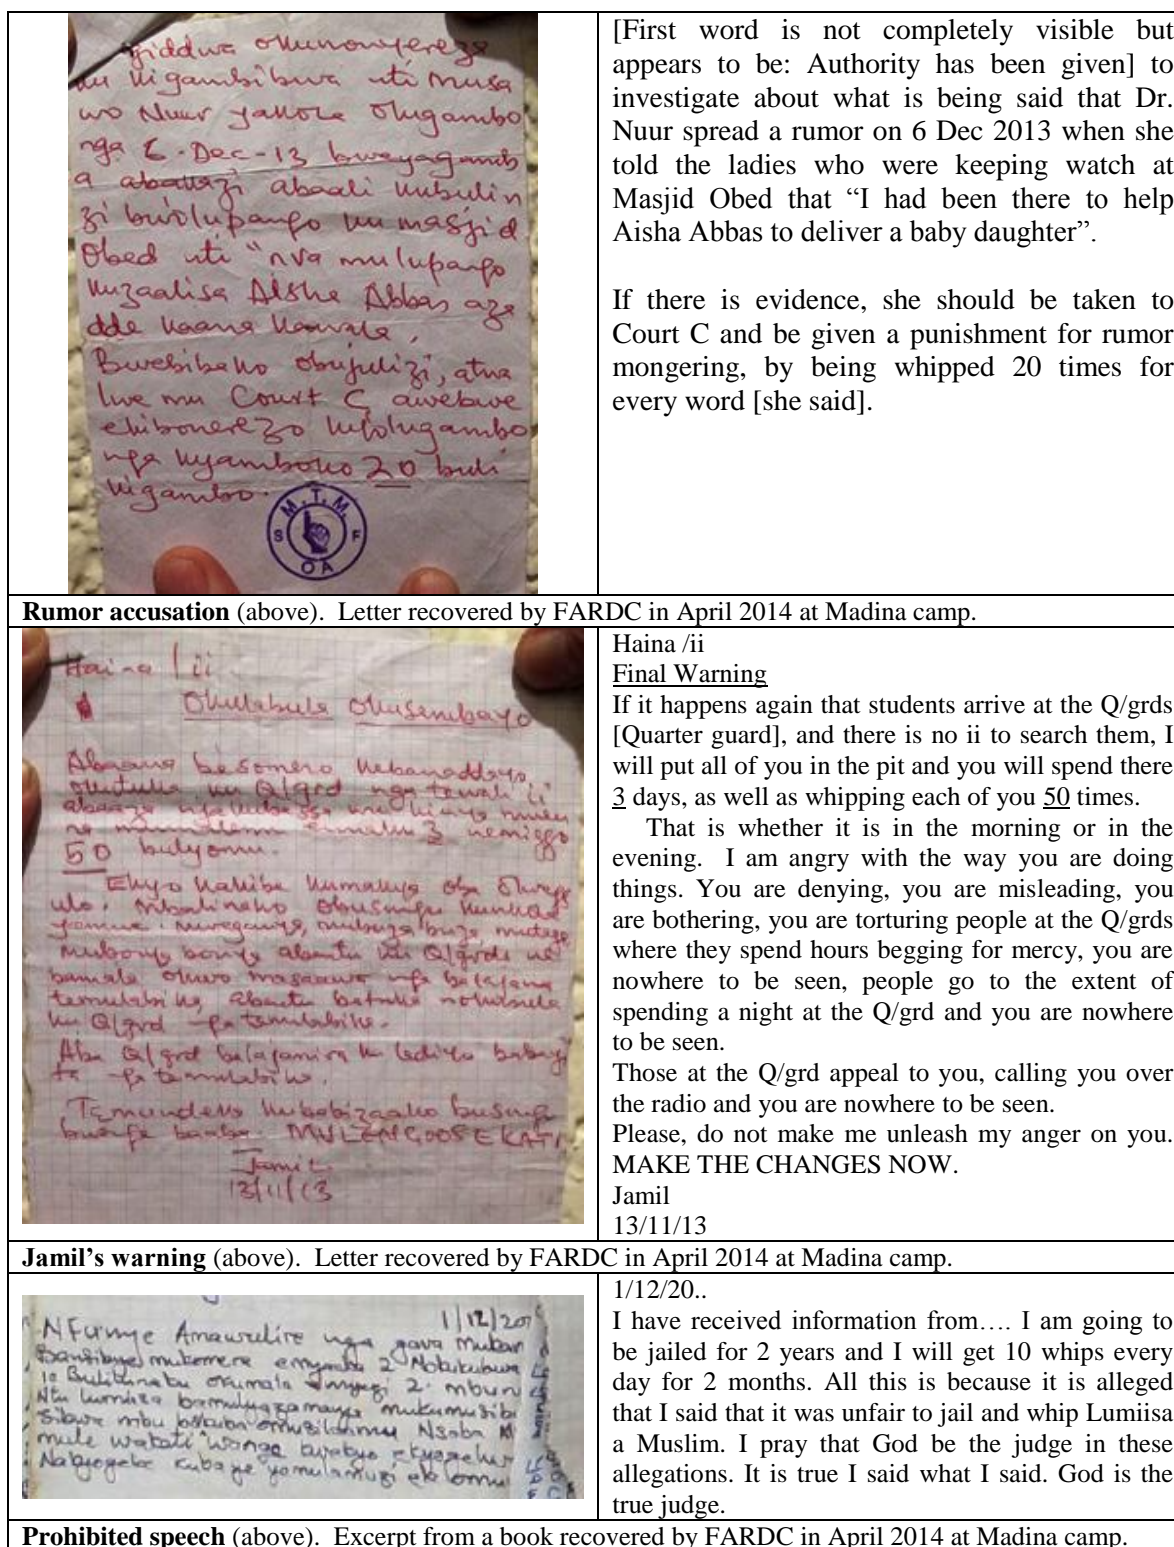 iddwa okunonyereza
ku kigambibwa nti musa
wo Nuur yakoze olugambo
nga 6-Dec-13 bweyagamb
a abakazi abaali kubulin
zi bwolupango ku masjid
Obed nti "nva mulupango
kuzaalisa Aisha Abbas aza
dde kaana kawala,
Bwesibako obujulizi, atwa
lwe mu Court C awebwe
ekibonerezo kyolugambo
nga kyamboko 20 buli
kigambo.
M.T.M
S F
OA
[First word is not completely visible but
appears to be: Authority has been given] to
investigate about what is being said that Dr.
Nuur spread a rumor on 6 Dec 2013 when she
told the ladies who were keeping watch at
Masjid Obed that “I had been there to help
Aisha Abbas to deliver a baby daughter”.
If there is evidence, she should be taken to
Court C and be given a punishment for rumor
mongering, by being whipped 20 times for
every word [she said].
Rumor accusation (above). Letter recovered by FARDC in April 2014 at Madina camp.
Haina / ii
Okulabula Okusembayo
Abaana besomero
okutuuka ku Q/grd nga tewali ii
3 nemiggo
50 bulyomu.
Ekyo kakibe kumakya oba
abantu ku Q/grds
temulabika, abantu batuuka nokusula
ku Q/grd
Aba Q/grd
MULEN GOOSEKATI
Jamil
13/11/13
Haina /ii
Final Warning
If it happens again that students arrive at the Q/grds
[Quarter guard], and there is no ii to search them, I
will put all of you in the pit and you will spend there
3 days, as well as whipping each of you 50 times.
That is whether it is in the morning or in the
evening. I am angry with the way you are doing
things. You are denying, you are misleading, you
are bothering, you are torturing people at the Q/grds
where they spend hours begging for mercy, you are
nowhere to be seen, people go to the extent of
spending a night at the Q/grd and you are nowhere
to be seen.
Those at the Q/grd appeal to you, calling you over
the radio and you are nowhere to be seen.
Please, do not make me unleash my anger on you.
MAKE THE CHANGES NOW.
Jamil
13/11/13
Jamil’s warning (above). Letter recovered by FARDC in April 2014 at Madina camp.
1/12/20
NFunye Amawulire nga gava
mukomera emyaka 2
okumala emyezi 2. mbu
Ntu Lumiiza
mbu Nsaba
1/12/20..
I have received information from…. I am going to
be jailed for 2 years and I will get 10 whips every
day for 2 months. All this is because it is alleged
that I said that it was unfair to jail and whip Lumiisa
a Muslim. I pray that God be the judge in these
allegations. It is true I said what I said. God is the
true judge.
Prohibited speech (above). Excerpt from a book recovered by FARDC in April 2014 at Madina camp.